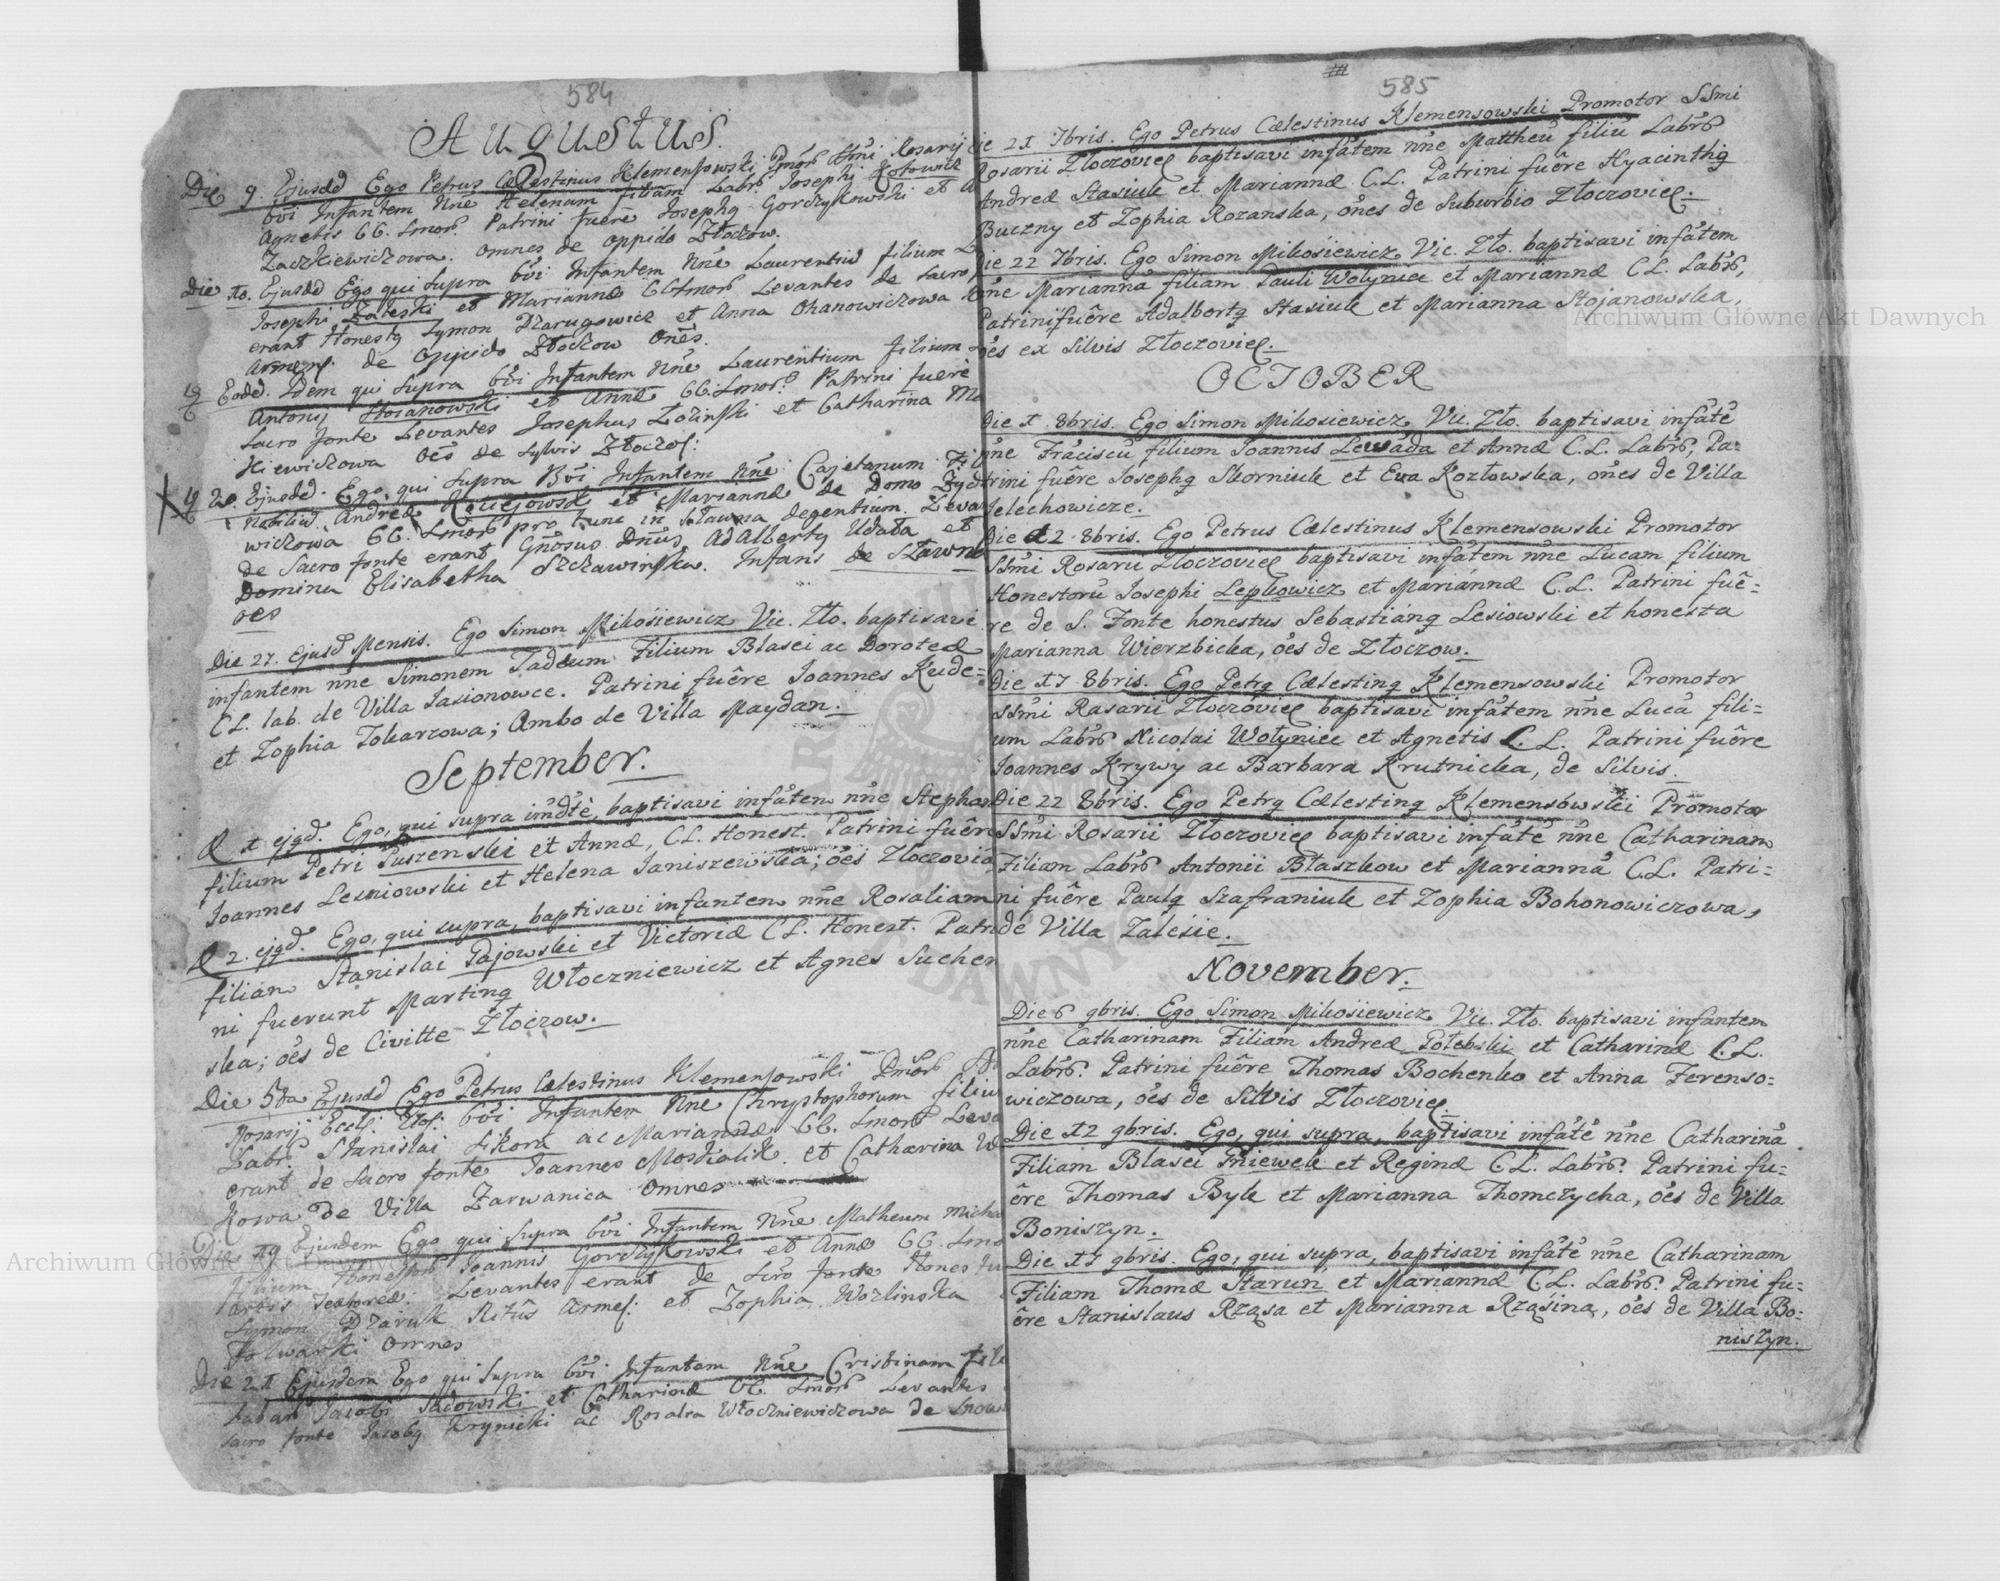 584
AUgUStUS.
Die 9. Ejusdd Ego Petrus Cælestinus Klemensowski Pmõr Sſmi Rosarij
bvi Infantem Nne Helenam filiam Labr Josephi Kotowicz
Agnetis CC. Lmor. Patrini fuere Josephq Gorczykowski et A
Zaczkiewiczowa. Omnes de oppido Złoczow.
Die 10. Ejusdd Ego qui supra bvi Infantem Nne Laurentiu filium L
Josephi Zaleski et Mariannæ CC Lmor Levantes de Sacro
erant Honestq Symon Dzarugowicz et Anna Ohanowiczowa
Armenſ. de Oppido Złoczow Ones.
19 Eodd. Idem qui supra bvi Infantem Nne Laurentium filium
Antonij Hosanowski et Annæ CC. Lmor. Patrini fuere
Sacro fonte Levantes Josephus Łozinski et Catharina Ma
Kiewiczowa Oes de Sylvis Złoczoſ:
19 20. Ejusdd. Ego, qui supra Bvi Infantem Nne Cajetanum
Nobiliu Andreæ Maciejowski et Mariannæ de Domo
wiczowa CC. Lmor pro tunc in Sławna degentium. Leva
de Sacro fonte erant Gnosus Dnus Adalbertq Udała et
Domina Elisabetha Szczawinska. Infans de Sławna
oes
Die 27. ejusd Mensis. Ego Simon Mikosiewicz Vic. Zło. baptisavi
infantem nne Simonem Tadeum Filium Blasei ac Doroteæ
CL. lab. de Villa Jasionowce. Patrini fuêre Joannes Kude=
et Zophia Tokarzowa; Ambo de Villa Maydan.
September.
D 1 ejqd. Ego, qui supra imdte, baptisavi infatem nne Stephan
filium Petri Puszenski et Annæ, CL. Honest. Patrini fuêre
Joannes Lesniowski et Helena Janiszewska; oes Złoczovia
D 2. ejqd. Ego, qui supra, baptisavi infantem nne Rosaliam
filiam Stanislai Pajowski et Victoriæ CL. Honest. Patri
ni fuerunt Martinq Włoczniewicz et Agnes Suchen
ska; oes de Civitte Złoczow.
Die 5ta Ejusdd Ego Petrus Cælestinus Klemensowski Pmor
Rosarij Eccl. Złoſ. bvi Infantem Nne Chrystophorum filiu
Labr. Stanislai Sikora ac Mariannæ CC. Lmor Leva
erant de Sacro fonte Joannes Mosdialik et Catharina W
Kowa de Villa Zarwanica Omnes
Die 19 Ejusdem Ego qui supra bvi Infantem Nne Matheum Micha
filium Honestor Joannis Gorczykowski et Annæ CC. Lmo
artis Textoreæ. Levantes erant de Sacro fonte Hones
Symon Dzaruk Ritus Armeſ. et Zophia Wozlinska
Folwarki Omnes
Die 21 Ejusdem Ego qui supra bvi Infantem Nne Cristinam Fili
Labar Jacobi Sadowski et Catharinæ CC. Lmor Levantes
sacro fonte Jacobq Krynicki ac Rosalia Włoczniewiczowa de Snow
585
Die 21 7bris. Ego Petrus Cælestinus Klemensowski Promotor SSmi
Rosarii Złoczovieę baptisavi infatem nne Mattheu filiu Labrõ
Andreæ Stasiuk et Mariannæ C.L. Patrini fuêre Hyacinthq
Buczny et Zophia Rozanska, ones de Suburbio Złoczovieę.
Die 22 7bris. Ego Simon Mikosiewicz Vic. Zło. baptisavi infatem
nne Marianna filiam Pauli Wołyniec et Mariannæ C.L. Labrõ,
Patrini fuêre Adalbertq Stasiuk et Marianna Stojanowska,
oes ex Silvis Złoczovieę.
OCTOBER
Die 1 8bris. Ego Simon Mikosiewicz Vic. Zło. baptisavi infate
nne Fraciscu filium Joannis Lewada et Annæ C.L. Labrõ, Pa=
trini fuêre Josephq Skorniuk et Ewa Kozłowska, ones de Villa
Jelechowicze.
Die 12 8bris. Ego Petrus Cælestinus Klemensowski Promotor
SSmi Rosarii Złoczovieę baptisavi infatem nne Lucam filium
Honestoru Josephi Lepkowicz et Mariannæ C.L. Patrini fuê=
re de S. Fonte honestus Sebastianq Lesiowski et honesta
Marianna Wierzbicka, oes de Złoczow.
Die 17 8bris. Ego Petrq Cælestinq Klemensowski Promotor
SSmi Rasarii Złoczovieę baptisavi infatem nne Luca fili=
um Labrõ Nicolai Wołyniec et Agnetis C.L. Patrini fuêre
Joannes Krywy ac Barbara Krutnicka, de Silvis.
Die 22 8bris. Ego Petrq Cælestinq Klemensowski Promotor
SSmi Rosarii Złoczovieę baptisavi infate nne Catharinam
Filiam Labrõ Antonii Błaszkow et Marianna C.L. Patri=
ni fuêre Paulq Szafraniuk et Zophia Bohonowiczowa,
de Villa Zalesie.
November.
Die 6 9bris. Ego Simon Mikosiewicz Vic. Zło. baptisavi infantem
nne Catharinam Filiam Andreæ Połebski et Catharinæ C.L.
Labrõ. Patrini fuêre Thomas Bochenko et Anna Ferenso=
wiczowa, oes de Silvis Złoczovieę.
Die 12 9bris. Ego, qui supra, baptisavi infate nne Catharina
Filiam Blasei Fniewek et Reginæ C.L. Labrõ. Patrini fu=
êre Thomas Byk et Marianna Thomczycha, oes de Villa
Boniszyn.
Die 17 9bris. Ego, qui supra, baptisavi infate nne Catharinam
Filiam Thomæ Starun et Mariannæ C.L. Labrõ. Patrini fu=
êre Stanislaus Rząsa et Marianna Rząsina, oes de Villa Bo=
niszyn.
Archiwum Główne Akt Dawnych
Archiwum Główne Akt Dawnych